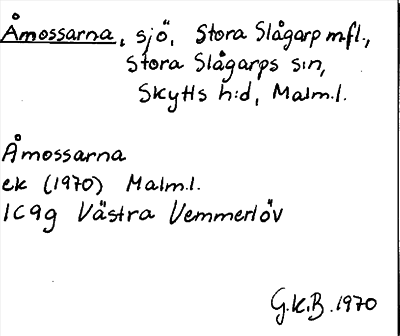 Åmossarna, sjö, Stora Slågarp mfl.,
Stora Slågarps sn,
Skytts h:d, Malm.l.
Åmossarna
ek (1970) Malm.l.
1C9g Västra Vemmerlöv
G.K.B. 1970